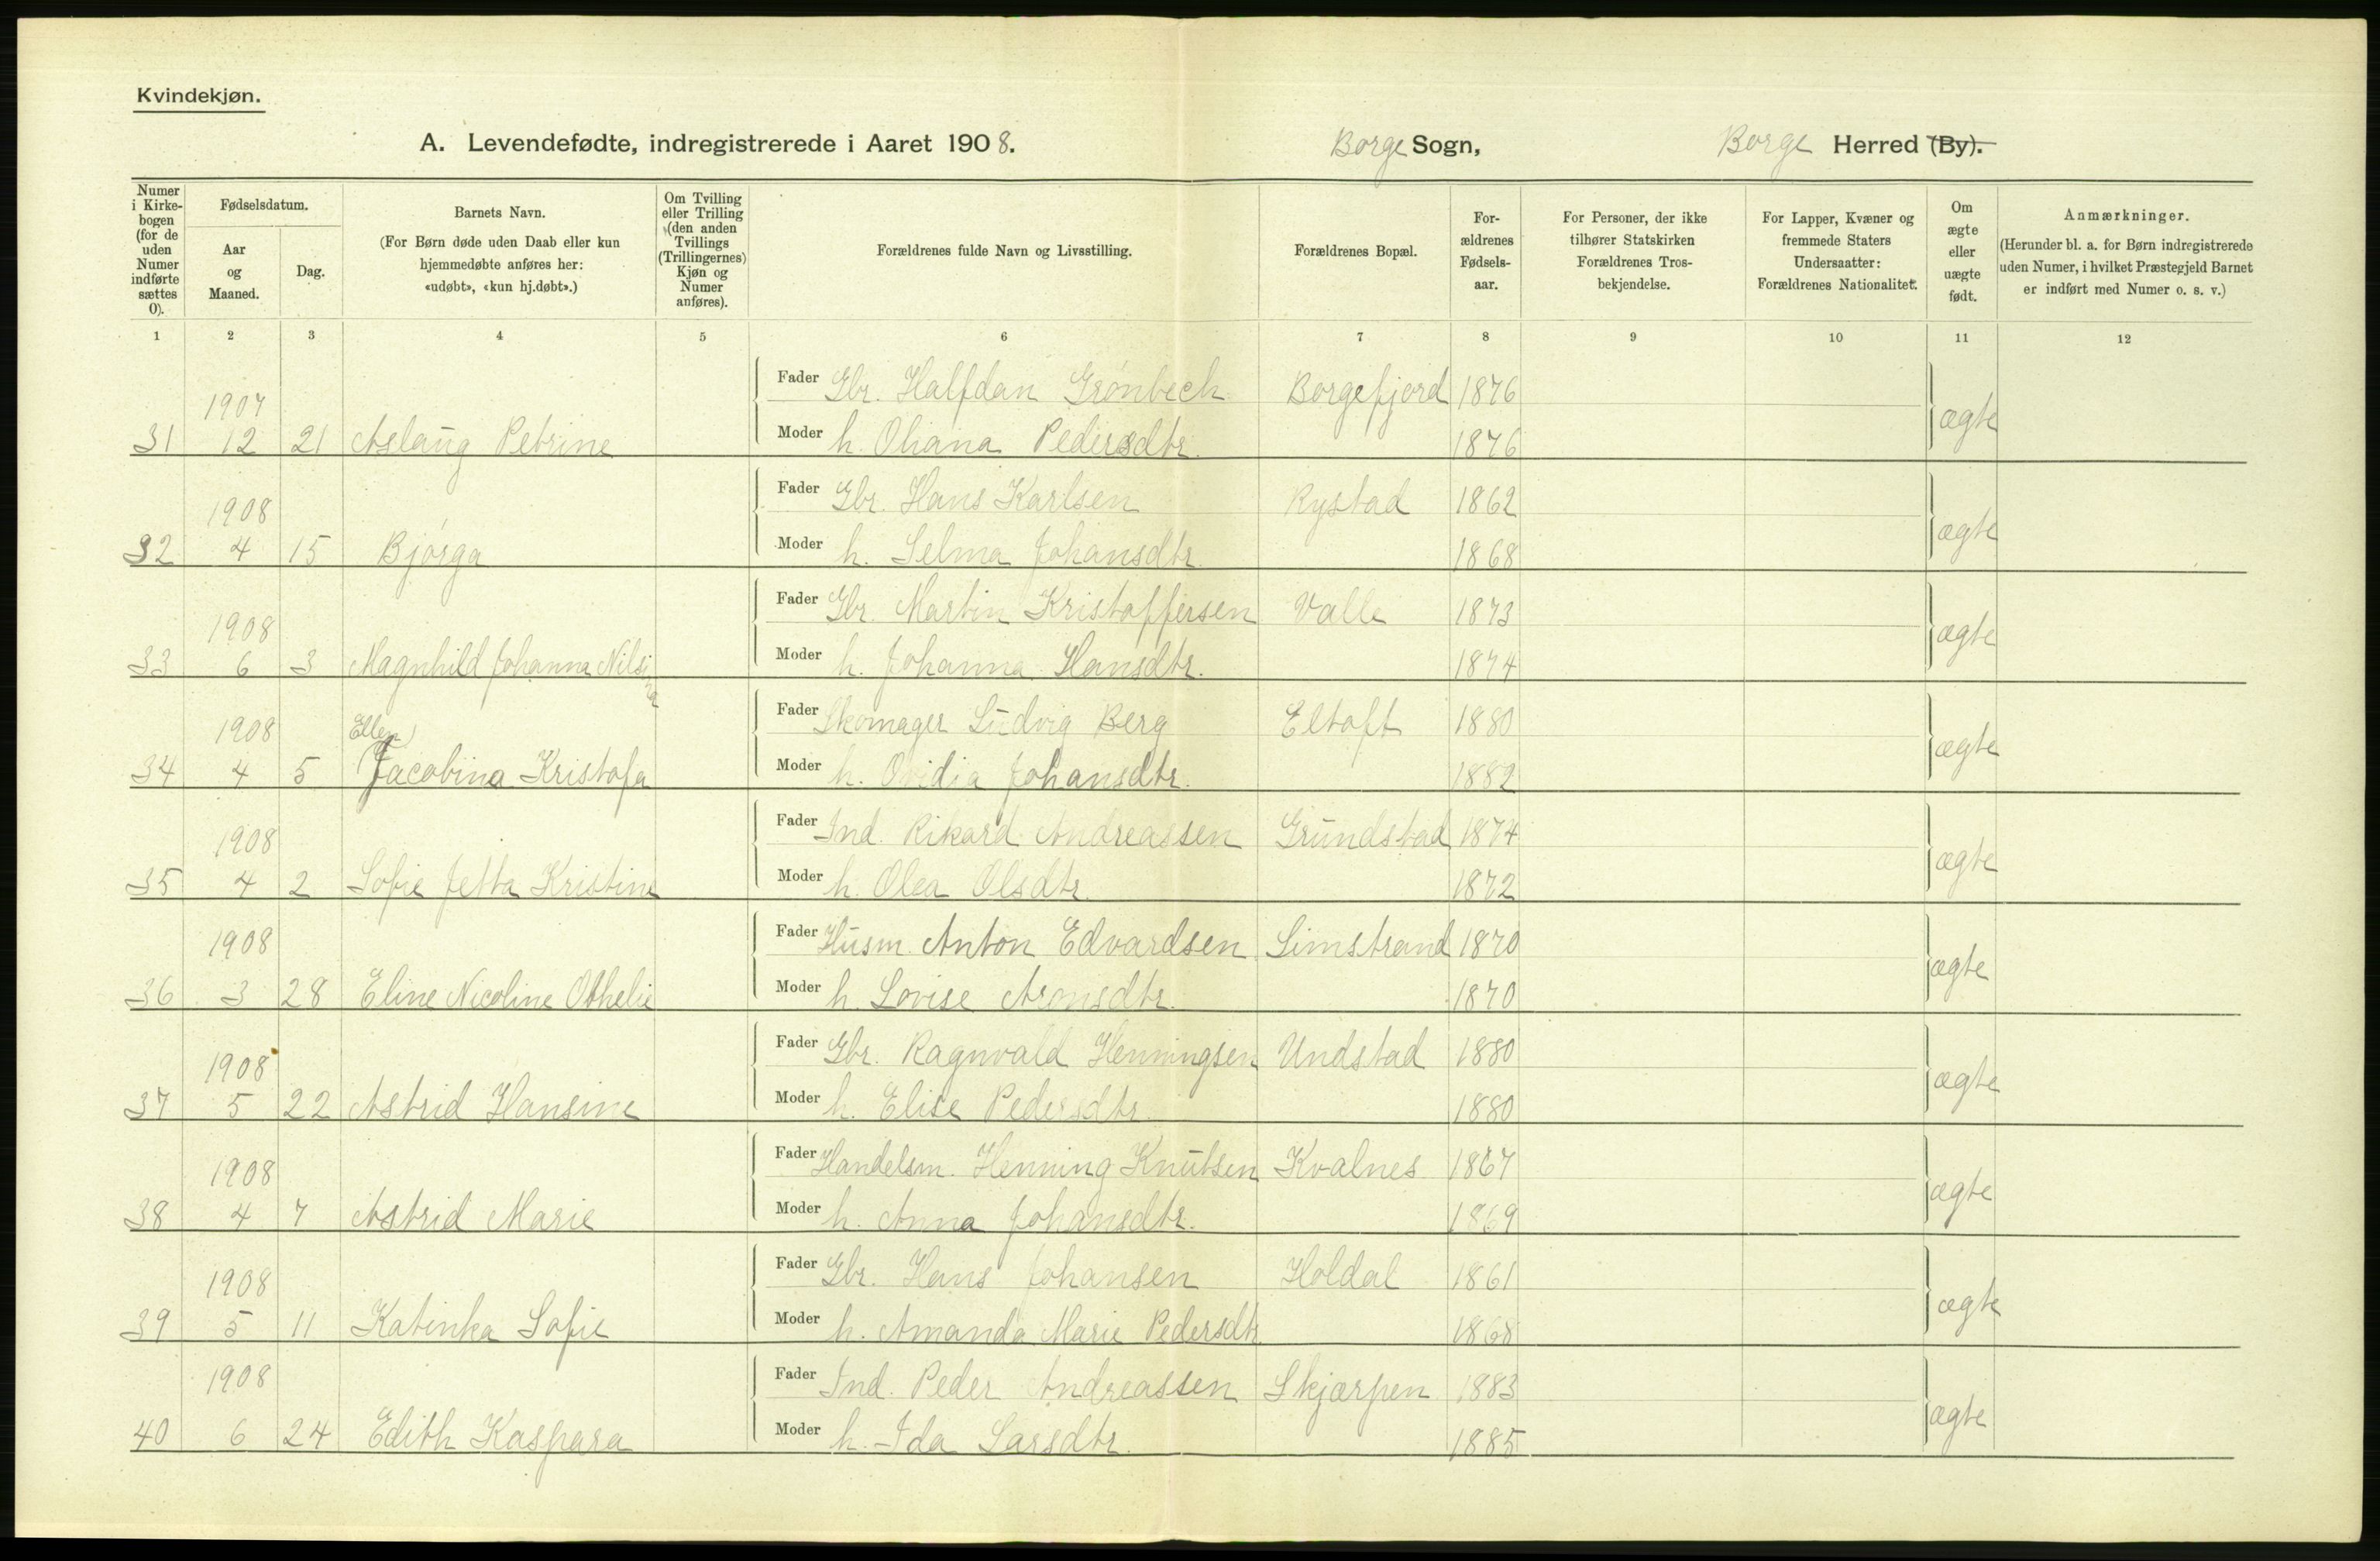 Kvindekjøn.
A. Levendefødte, indregistrerede i Aaret 1908. Borge Sogn, Borge Herred (By).
Numer i Kirke-bogen (for de uden Numer indførte sættes 0).
Fødselsdatum.
Aar og Maaned.
Dag.
Barnets Navn.
(For Børn døde uden Daab eller kun hjemmedøbte anføres her: «udøbt», «kun hj.døbt».)
Om Tvilling eller Trilling (den anden Tvillings (Trillingernes) Kjøn og Numer anføres).
Forældrenes fulde Navn og Livsstilling.
Forældrenes Bopæl.
For-ældrenes Fødsels-aar.
For Personer, der ikke tilhører Statskirken Forældrenes Tros-bekjendelse.
For Lapper, Kvæner og fremmede Staters Undersaatter: Forældrenes Nationalitet.
Om ægte eller uægte født.
Anmærkninger.
(Herunder bl. a. for Børn indregistrerede uden Numer, i hvilket Præstegjeld Barnet er indført med Numer o. s. v.)
1 2 3 4 5 6 7 8 9 10 11 12
1907 Fader Gbr. Halfdan Grønbech Borgefjord 1876
31 12 21 Aslaug Petrine Moder h. Oliana Pedersdtr. 1876 ægte
1908 Fader Gbr. Hans Karlsen Rystad 1862
32 4 15 Bjørga Moder h. Selma Johansdtr. 1868 ægte
1908 Fader Gbr. Martin Kristoffersen Valle 1873
33 6 3 Magnhild Johanna Nilsina Moder h. Johanna Hansdtr. 1874 ægte
1908 Ellen Fader Skomager Ludvig Berg Eltoft 1880
34 4 5 Jacobina Kristofa Moder h. Ovidia Johansdtr. 1882 ægte
1908 Fader Ind. Rikard Andreassen Grundstad 1874
35 4 2 Sofie Jetta Kristine Moder h. Olea Olsdtr. 1872 ægte
1908 Fader Husm. Anton Edvardsen Limstrand 1870
36 3 28 Eline Nicoline Othelie Moder h. Lovise Aronsdtr. 1870 ægte
1908 Fader Gbr. Ragnvald Henningsen Undstad 1880
37 5 22 Astrid Hansine Moder h. Elise Pedersdtr. 1880 ægte
1908 Fader Handelsm. Henning Knutsen Kvalnes 1867
38 4 7 Astrid Marie Moder h. Anna Johansdtr. 1869 ægte
1908 Fader Gbr. Hans Johansen Holdal 1861
39 5 11 Katinka Sofie Moder h. Amanda Marie Pedersdtr. 1868 ægte
1908 Fader Ind. Peder Andreassen Skjærpen 1883
40 6 24 Edith Kaspara Moder h. Ida Larsdtr. 1885 ægte